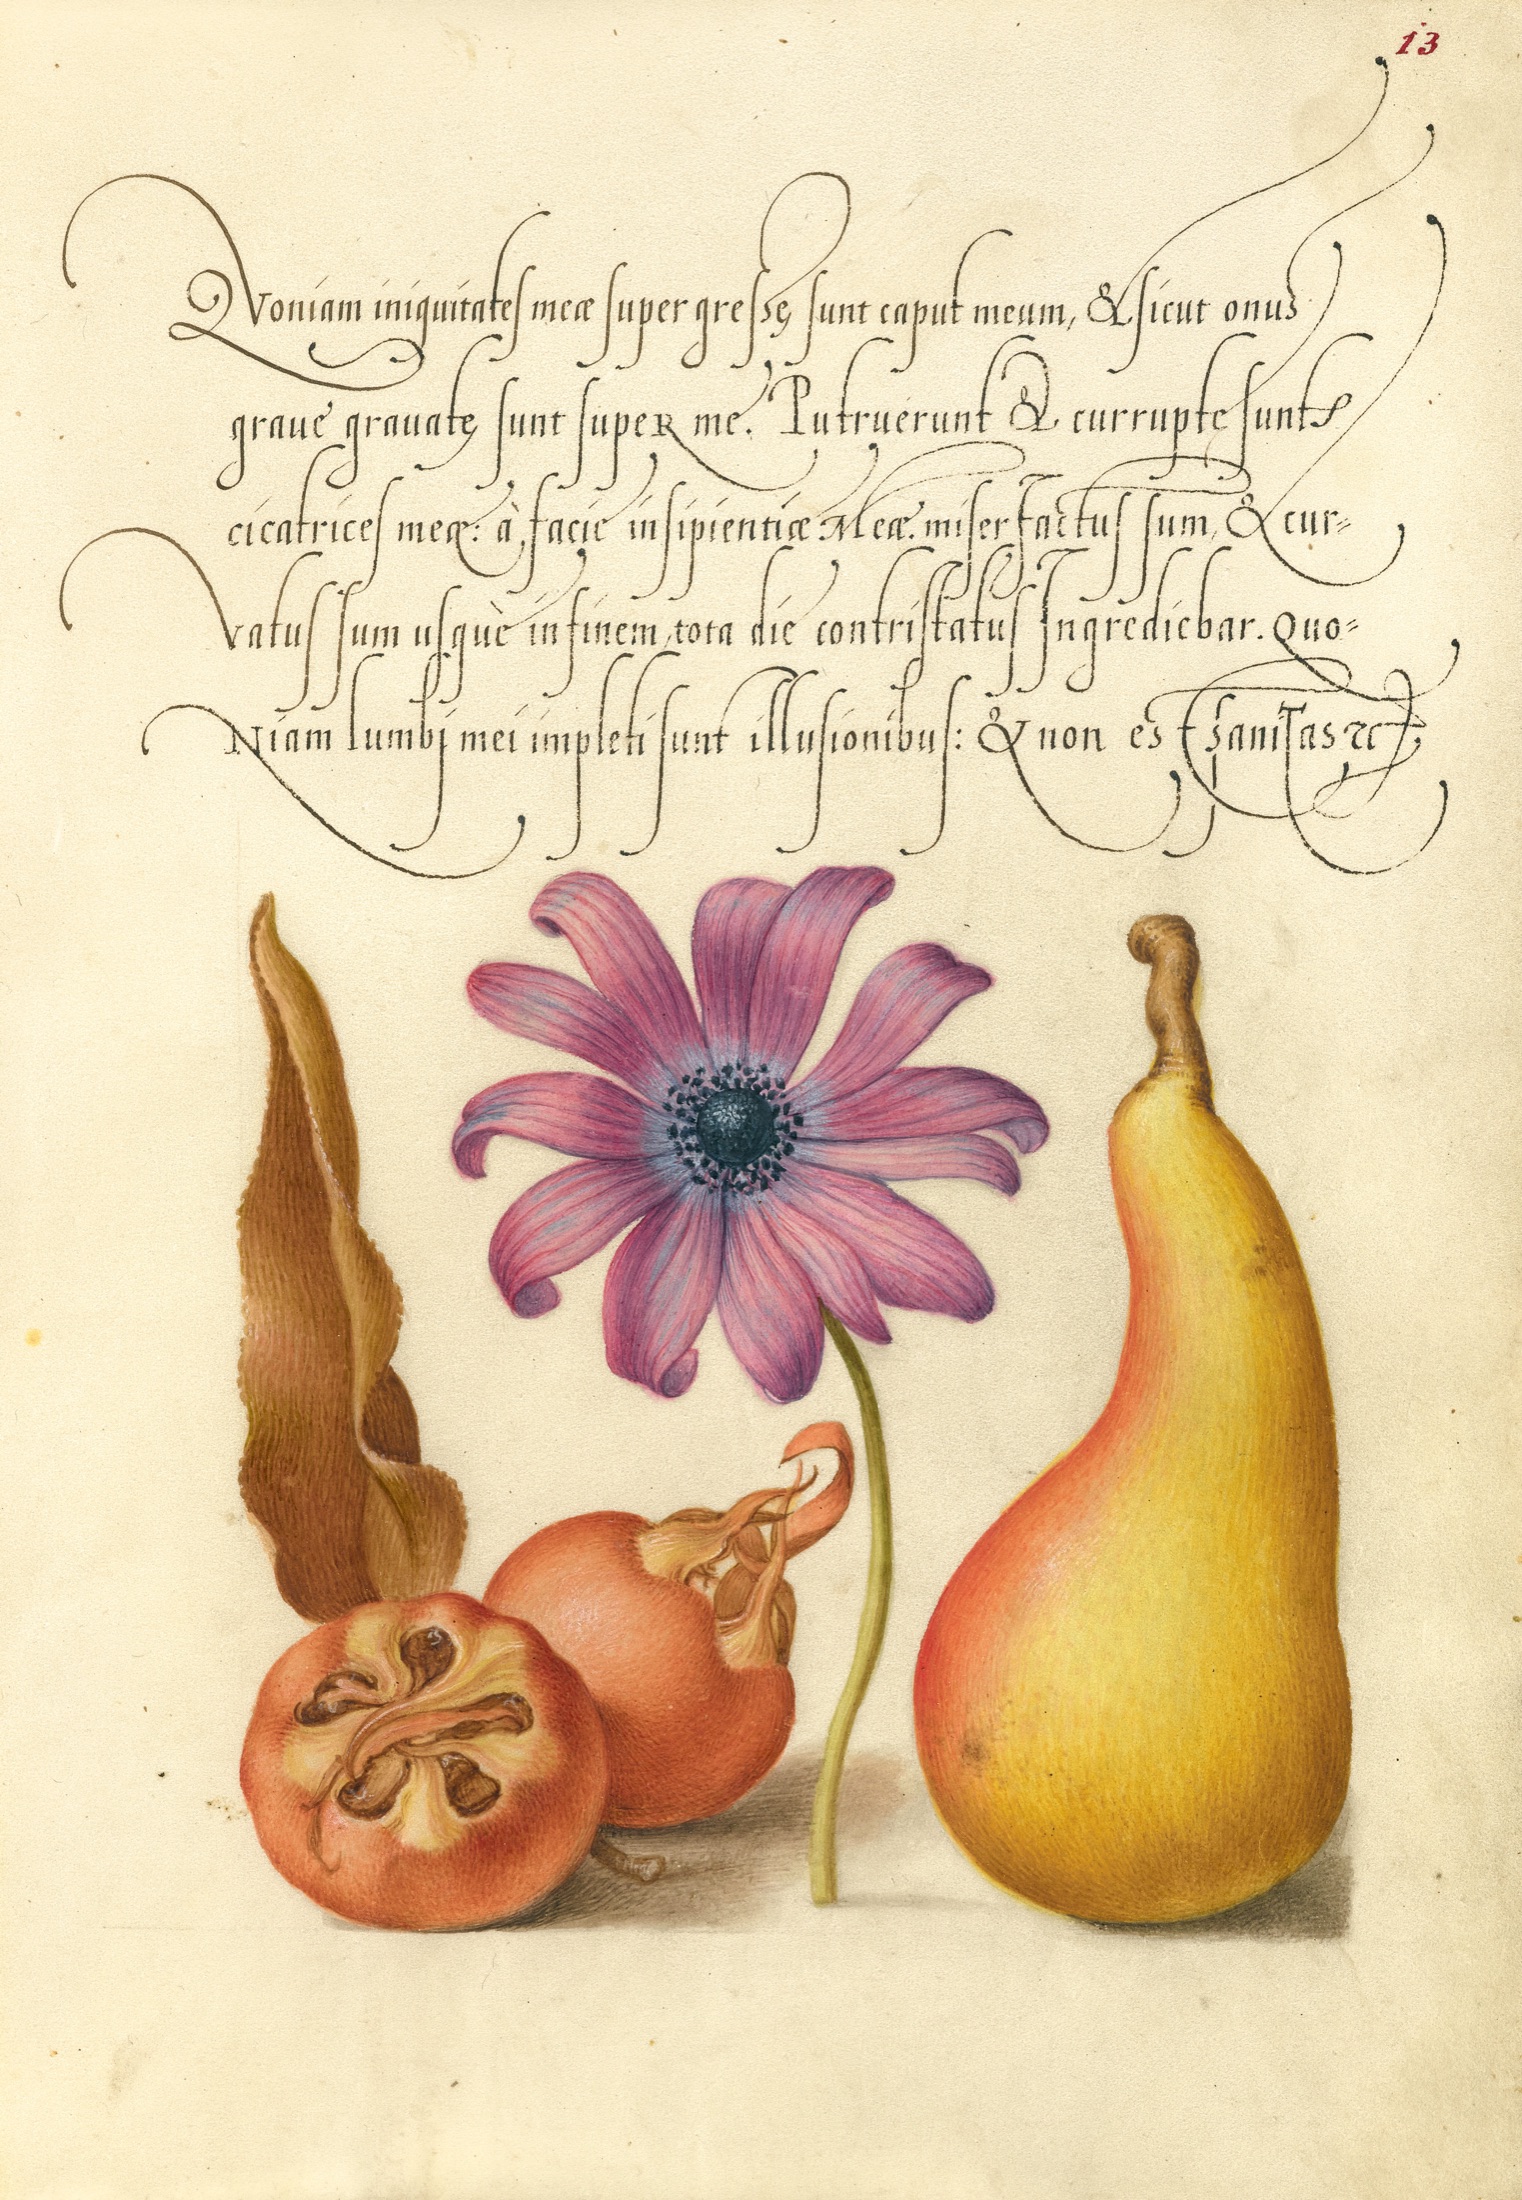 13
Quoniam iniquitates meæ supergressę sunt caput meum, & sicut onus
graue grauatę sunt supeR me. Putruerunt & curruptę sunt
cicatrices meæ: à facie insipientiæ Meæ. miser factus sum, & cur=
vatus sum usquè in finem, tota die contristatus Ingrediebar. Quo=
Niam lumbj mei impleti sunt illusionibus: & non est sanitas